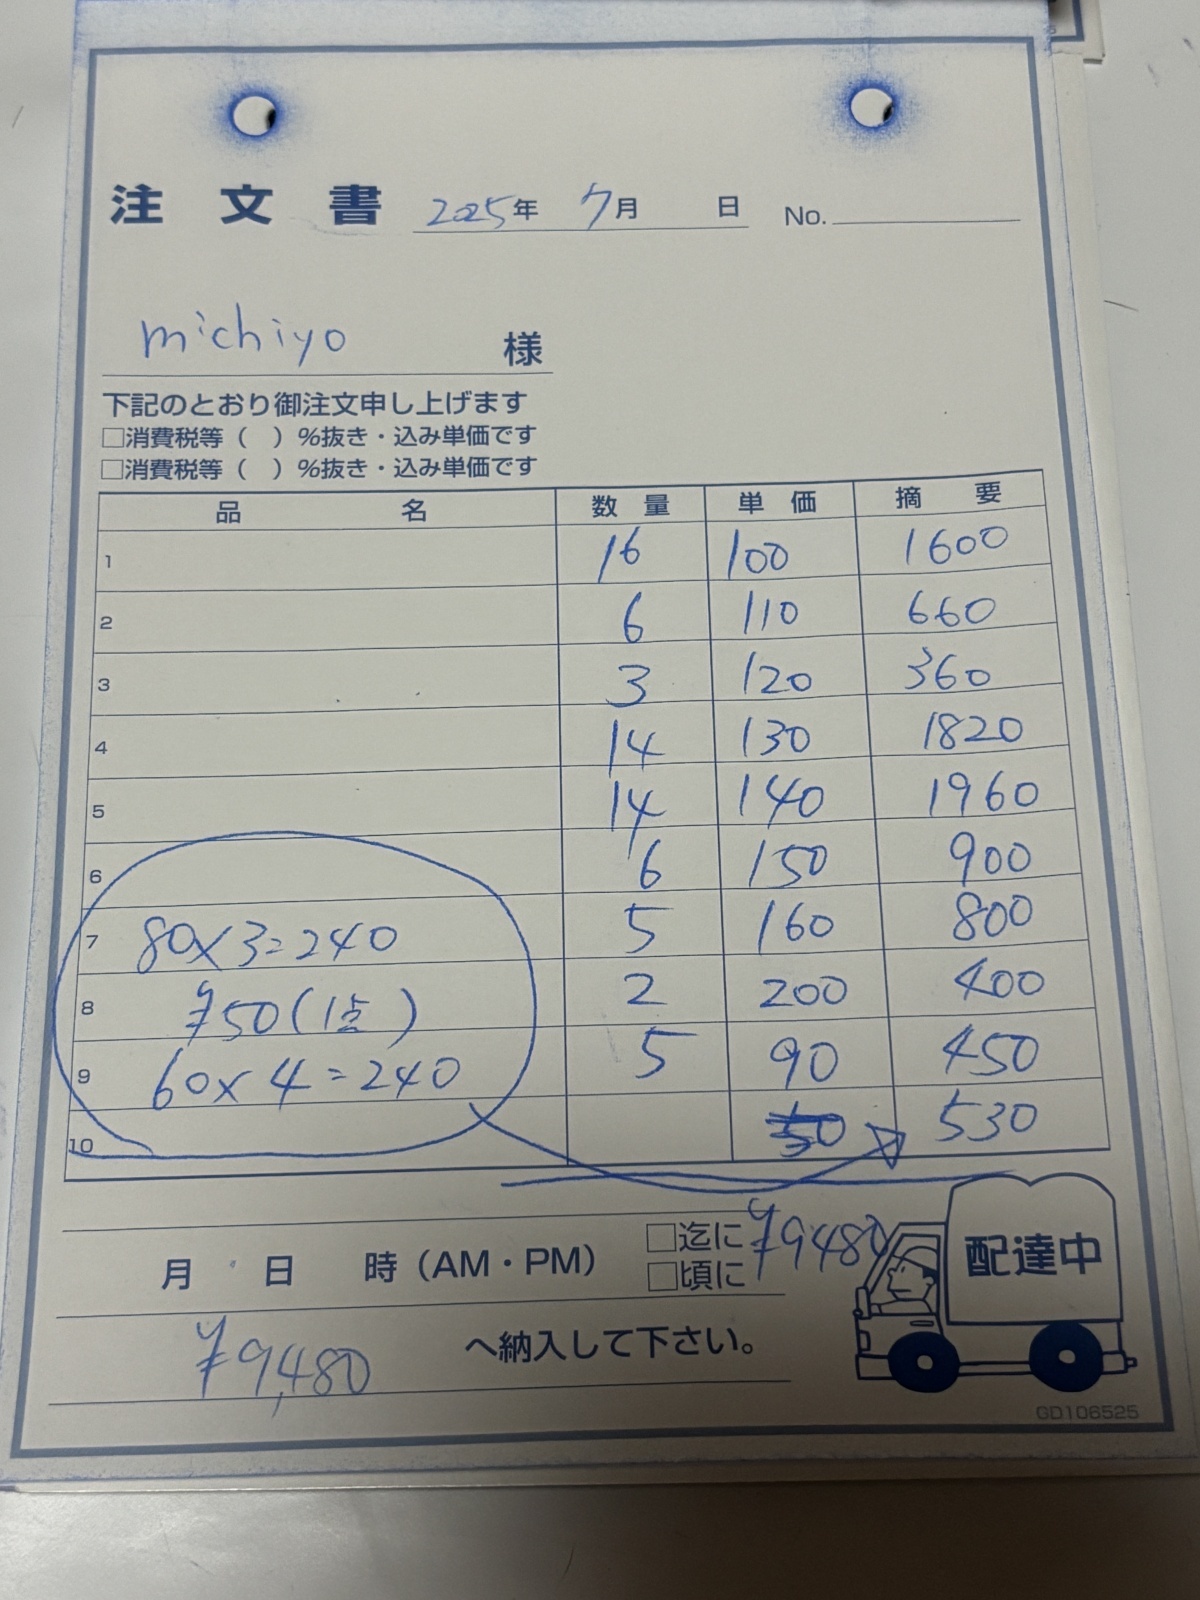 注文書 2025年 7月 日 No.
michiyo 様
下記のとおり御注文申し上げます
□消費税等（ ）%抜き・込み単価です
□消費税等（ ）%抜き・込み単価です
品名 数量 単価 摘要
1 16 100 1600
2 6 110 660
3 3 120 360
4 14 130 1820
5 14 140 1960
6 6 150 900
7 80×3=240 5 160 800
8 ¥50(1点) 2 200 400
9 60×4=240 5 90 450
10 530
月 日 時（AM・PM） □迄に ¥9,480
□頃に
配達中
¥9,480 へ納入して下さい。
GD106525